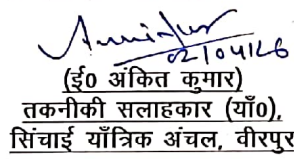 02/04/26
(ई0 अंकित कुमार)
तकनीकी सलाहकार (याँ0),
सिंचाई याँत्रिक अंचल, वीरपुर